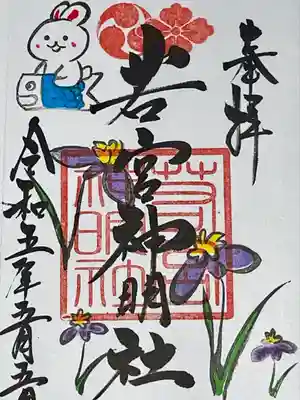 奉拝
若宮神明社
令和五年五月五日